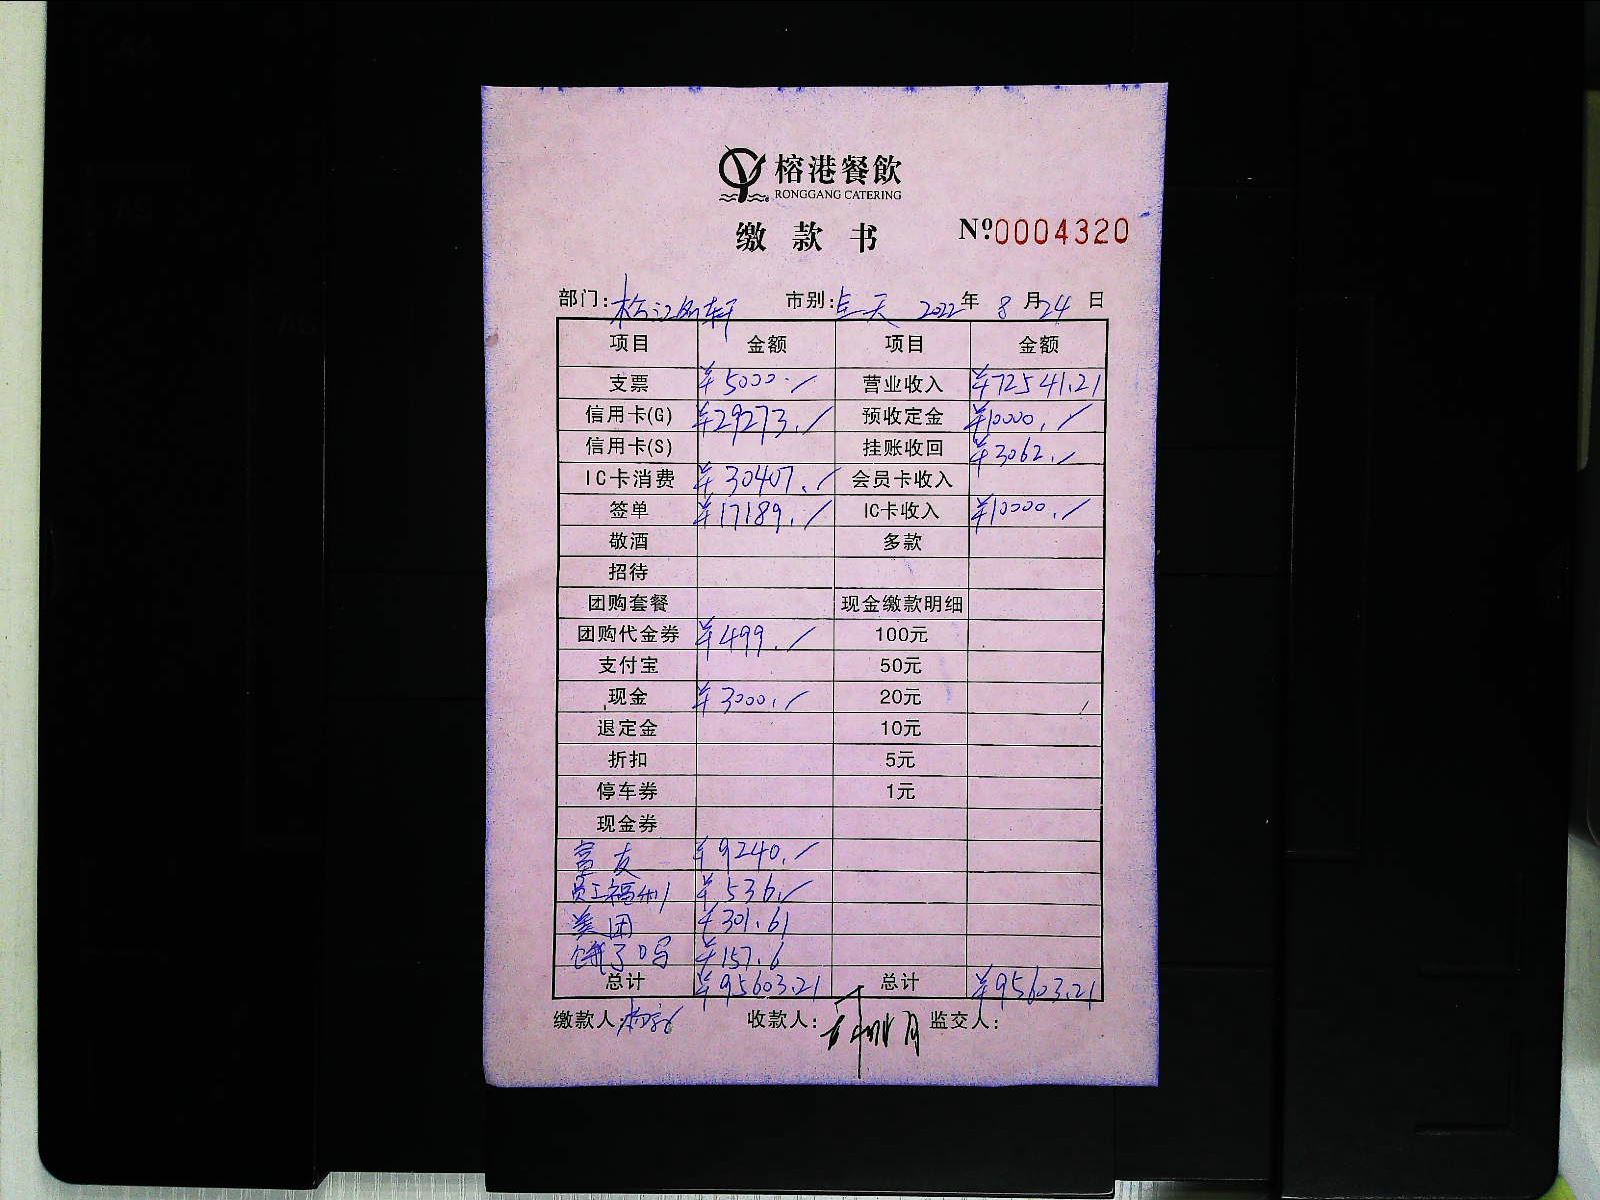 榕港餐飲
RONGGANG CATERING
缴款书 №0004320
部门: 市别:全天 2022年8月24日
项目 金额 项目 金额
支票 ¥5000. 营业收入 ¥72541.21
信用卡(G) ¥29273. 预收定金 ¥10000.
信用卡(S) 挂账收回 ¥3062.
IC卡消费 ¥30407. 会员卡收入
签单 ¥17189. IC卡收入 ¥10000.
敬酒 多款
招待
团购套餐 现金缴款明细
团购代金券 ¥499. 100元
支付宝 50元
现金 ¥3000. 20元
退定金 10元
折扣 5元
停车券 1元
现金券
富友 ¥9240.
员工福利 ¥536.
美团 ¥301.61
饿了吗 ¥157.6
总计 ¥95603.21 总计 ¥95603.21
缴款人: 收款人: 监交人: